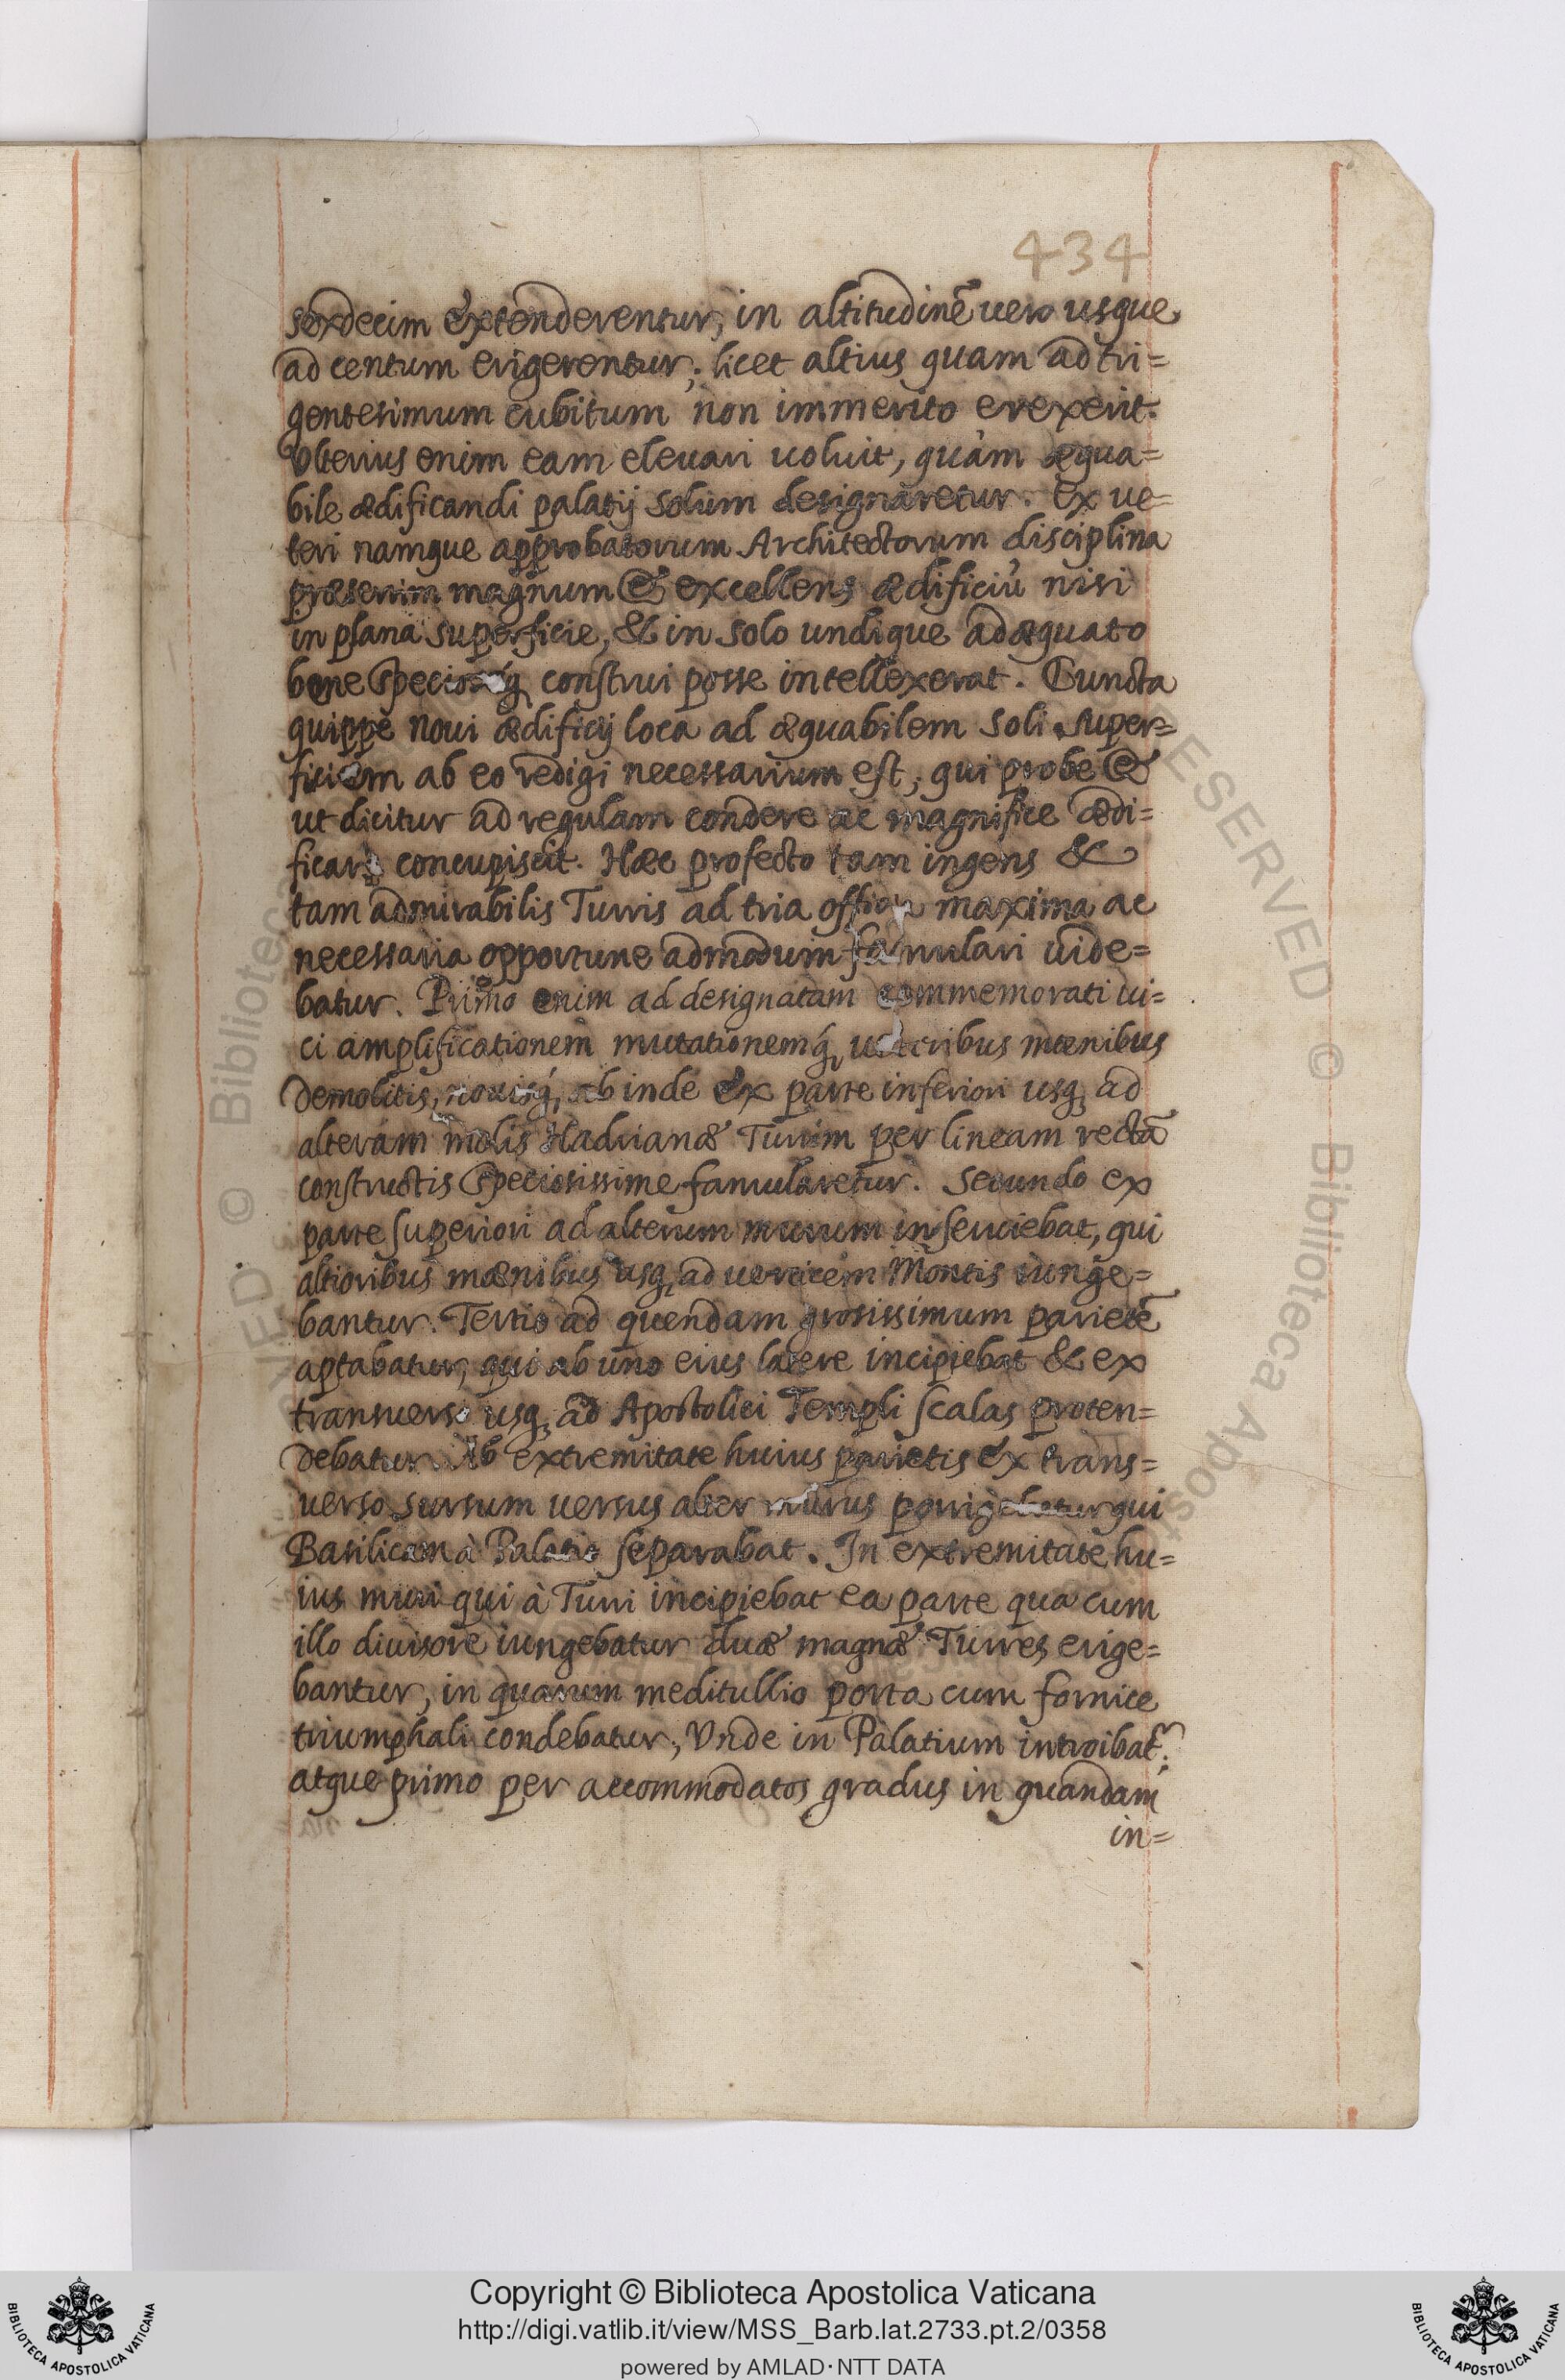 434
sexdecim extenderentur, in altitudinẽ uero usque
ad centum erigerentur; licet altius quam ad tri=
gentesimum cubitum non immerito erexerit.
Vlterius enim eam eleuari uoluit, quàm æqua=
bile ædificandi palatij solum designaretur. Ex ue=
teri namque approbatorum Architectorum disciplina
præsertim magnum & excellens ædificiũ nisi
in plana superficie, & in solo undique adæquato
bene speciosèq́ construi posse intellexerat. Cuncta
quippe noui ædificij loca ad æquabilem soli super=
ficiem ab eo redigi necessarium est, qui probe &
ut dicitur ad regulam condere ac magnifice ædi=
ficare concupiscit. Hæc profecto tam ingens &
tam admirabilis Turris ad tria officia maxima ac
necessaria opportune admodum famulari uide=
batur. Primo enim ad designatam commemorati ui=
ci amplificationem mutationemq́, ueteribus mœnibus
demolitis, nouisq́, ab inde ex parte inferiori usq, ad
alteram molis Hadrianæ Turrim per lineam rectã
constructis speciosissime famularetur. Secundo ex
parte superiori ad alterum murum inseruiebat, qui
altioribus mœnibus usq, ad uerticem Montis iunge=
bantur. Tertio ad quendam grosissimum parietẽ
aptabatur, qui ab uno eius latere incipiebat & ex
transuerso usq, ad Apostolici Templi scalas proten=
debatur. Ab extremitate huius parietis ex trans=
uerso sursum uersus alter murus porrigebatur qui
Basilicam à Palatio separabat. In extremitate hu=
ius muri qui à Turri incipiebat ea parte qua cum
illo diuisore iungebatur duæ magnæ Turres erige=
bantur, in quarum meditullio porta cum fornice
triumphali condebatur, Vnde in Palatium introibat̃;
atque primo per accommodatos gradus in quandam
in=
Copyright © Biblioteca Apostolica Vaticana
http://digi.vatlib.it/view/MSS_Barb.lat.2733.pt.2/0358
powered by AMLAD·NTT DATA
BIBLIOTECA APOSTOLICA VATICANA
BIBLIOTECA APOSTOLICA VATICANA